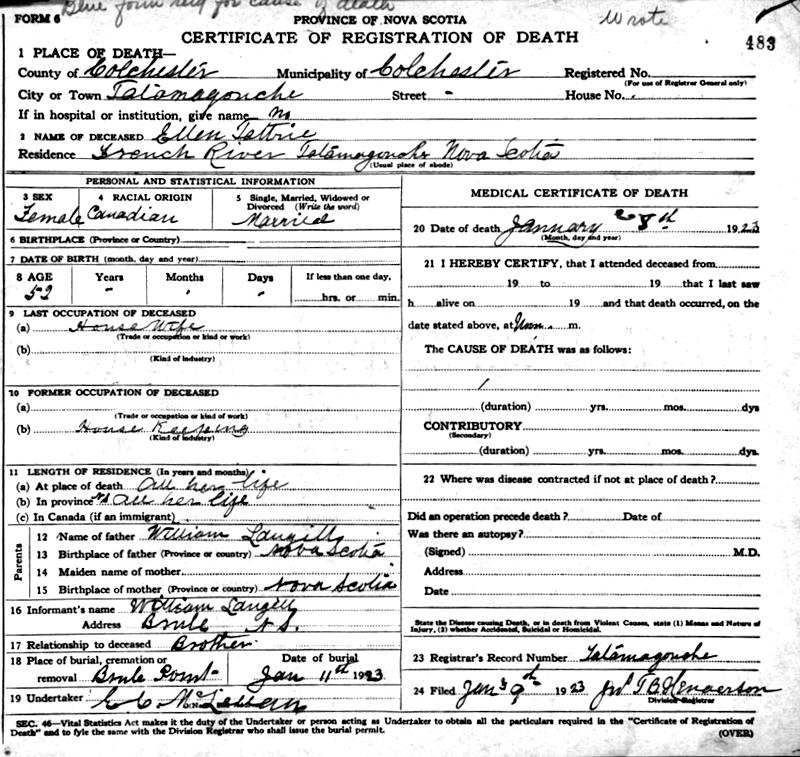 Blue form req for cause of death
Wrote
FORM 6 PROVINCE OF NOVA SCOTIA
CERTIFICATE OF REGISTRATION OF DEATH 483
1 PLACE OF DEATH—
County of Colchester Municipality of Colchester Registered No.
(For use of Registrar General only)
City or Town Tatamagouche Street - House No.
If in hospital or institution, give name no
2 NAME OF DECEASED Ellen Tattrie
Residence French River Tatamagouche Nova Scotia
(Usual place of abode)
PERSONAL AND STATISTICAL INFORMATION
3 SEX 4 RACIAL ORIGIN 5 Single, Married, Widowed or Divorced (Write the word)
Female Canadian Married
6 BIRTHPLACE (Province or Country)
7 DATE OF BIRTH (month, day and year)
8 AGE Years Months Days If less than one day,
52 - - hrs. or min.
9 LAST OCCUPATION OF DECEASED
(a) House Wife
(Trade or occupation or kind or work)
(b)
(Kind of industry)
10 FORMER OCCUPATION OF DECEASED
(a)
(Trade or occupation or kind of work)
(b) House Keeping
(Kind of industry)
11 LENGTH OF RESIDENCE (In years and months)
(a) At place of death all her life
(b) In province all her life
(c) In Canada (if an immigrant)
Parents
12 Name of father William Langill
13 Birthplace of father (Province or country) Nova Scotia
14 Maiden name of mother
15 Birthplace of mother (Province or country) Nova Scotia
16 Informant's name William Langill
Address Brule N.S.
17 Relationship to deceased Brother
18 Place of burial, cremation or removal Brule Point Date of burial Jan 11th 1923
19 Undertaker McLellan
MEDICAL CERTIFICATE OF DEATH
20 Date of death January 8th 1923
(Month, day and year)
21 I HEREBY CERTIFY, that I attended deceased from
19 to 19 that I last saw
h alive on 19 and that death occurred, on the
date stated above, at m.
The CAUSE OF DEATH was as follows:
(duration) yrs. mos. dys
CONTRIBUTORY
(Secondary)
(duration) yrs. mos. dys.
22 Where was disease contracted if not at place of death?
Did an operation precede death? Date of
Was there an autopsy?
(Signed) M.D.
Address
Date
State the Disease causing Death, or in death from Violent Causes, state (1) Means and Nature of
Injury, (2) whether Accidental, Suicidal or Homicidal.
23 Registrar's Record Number Tatamagouche
24 Filed Jany 9th 1923 T B Henderson
Division Registrar
SEC. 46—Vital Statistics Act makes it the duty of the Undertaker or person acting as Undertaker to obtain all the particulars required in the "Certificate of Registration of
Death" and to fyle the same with the Division Registrar who shall issue the burial permit. (OVER)